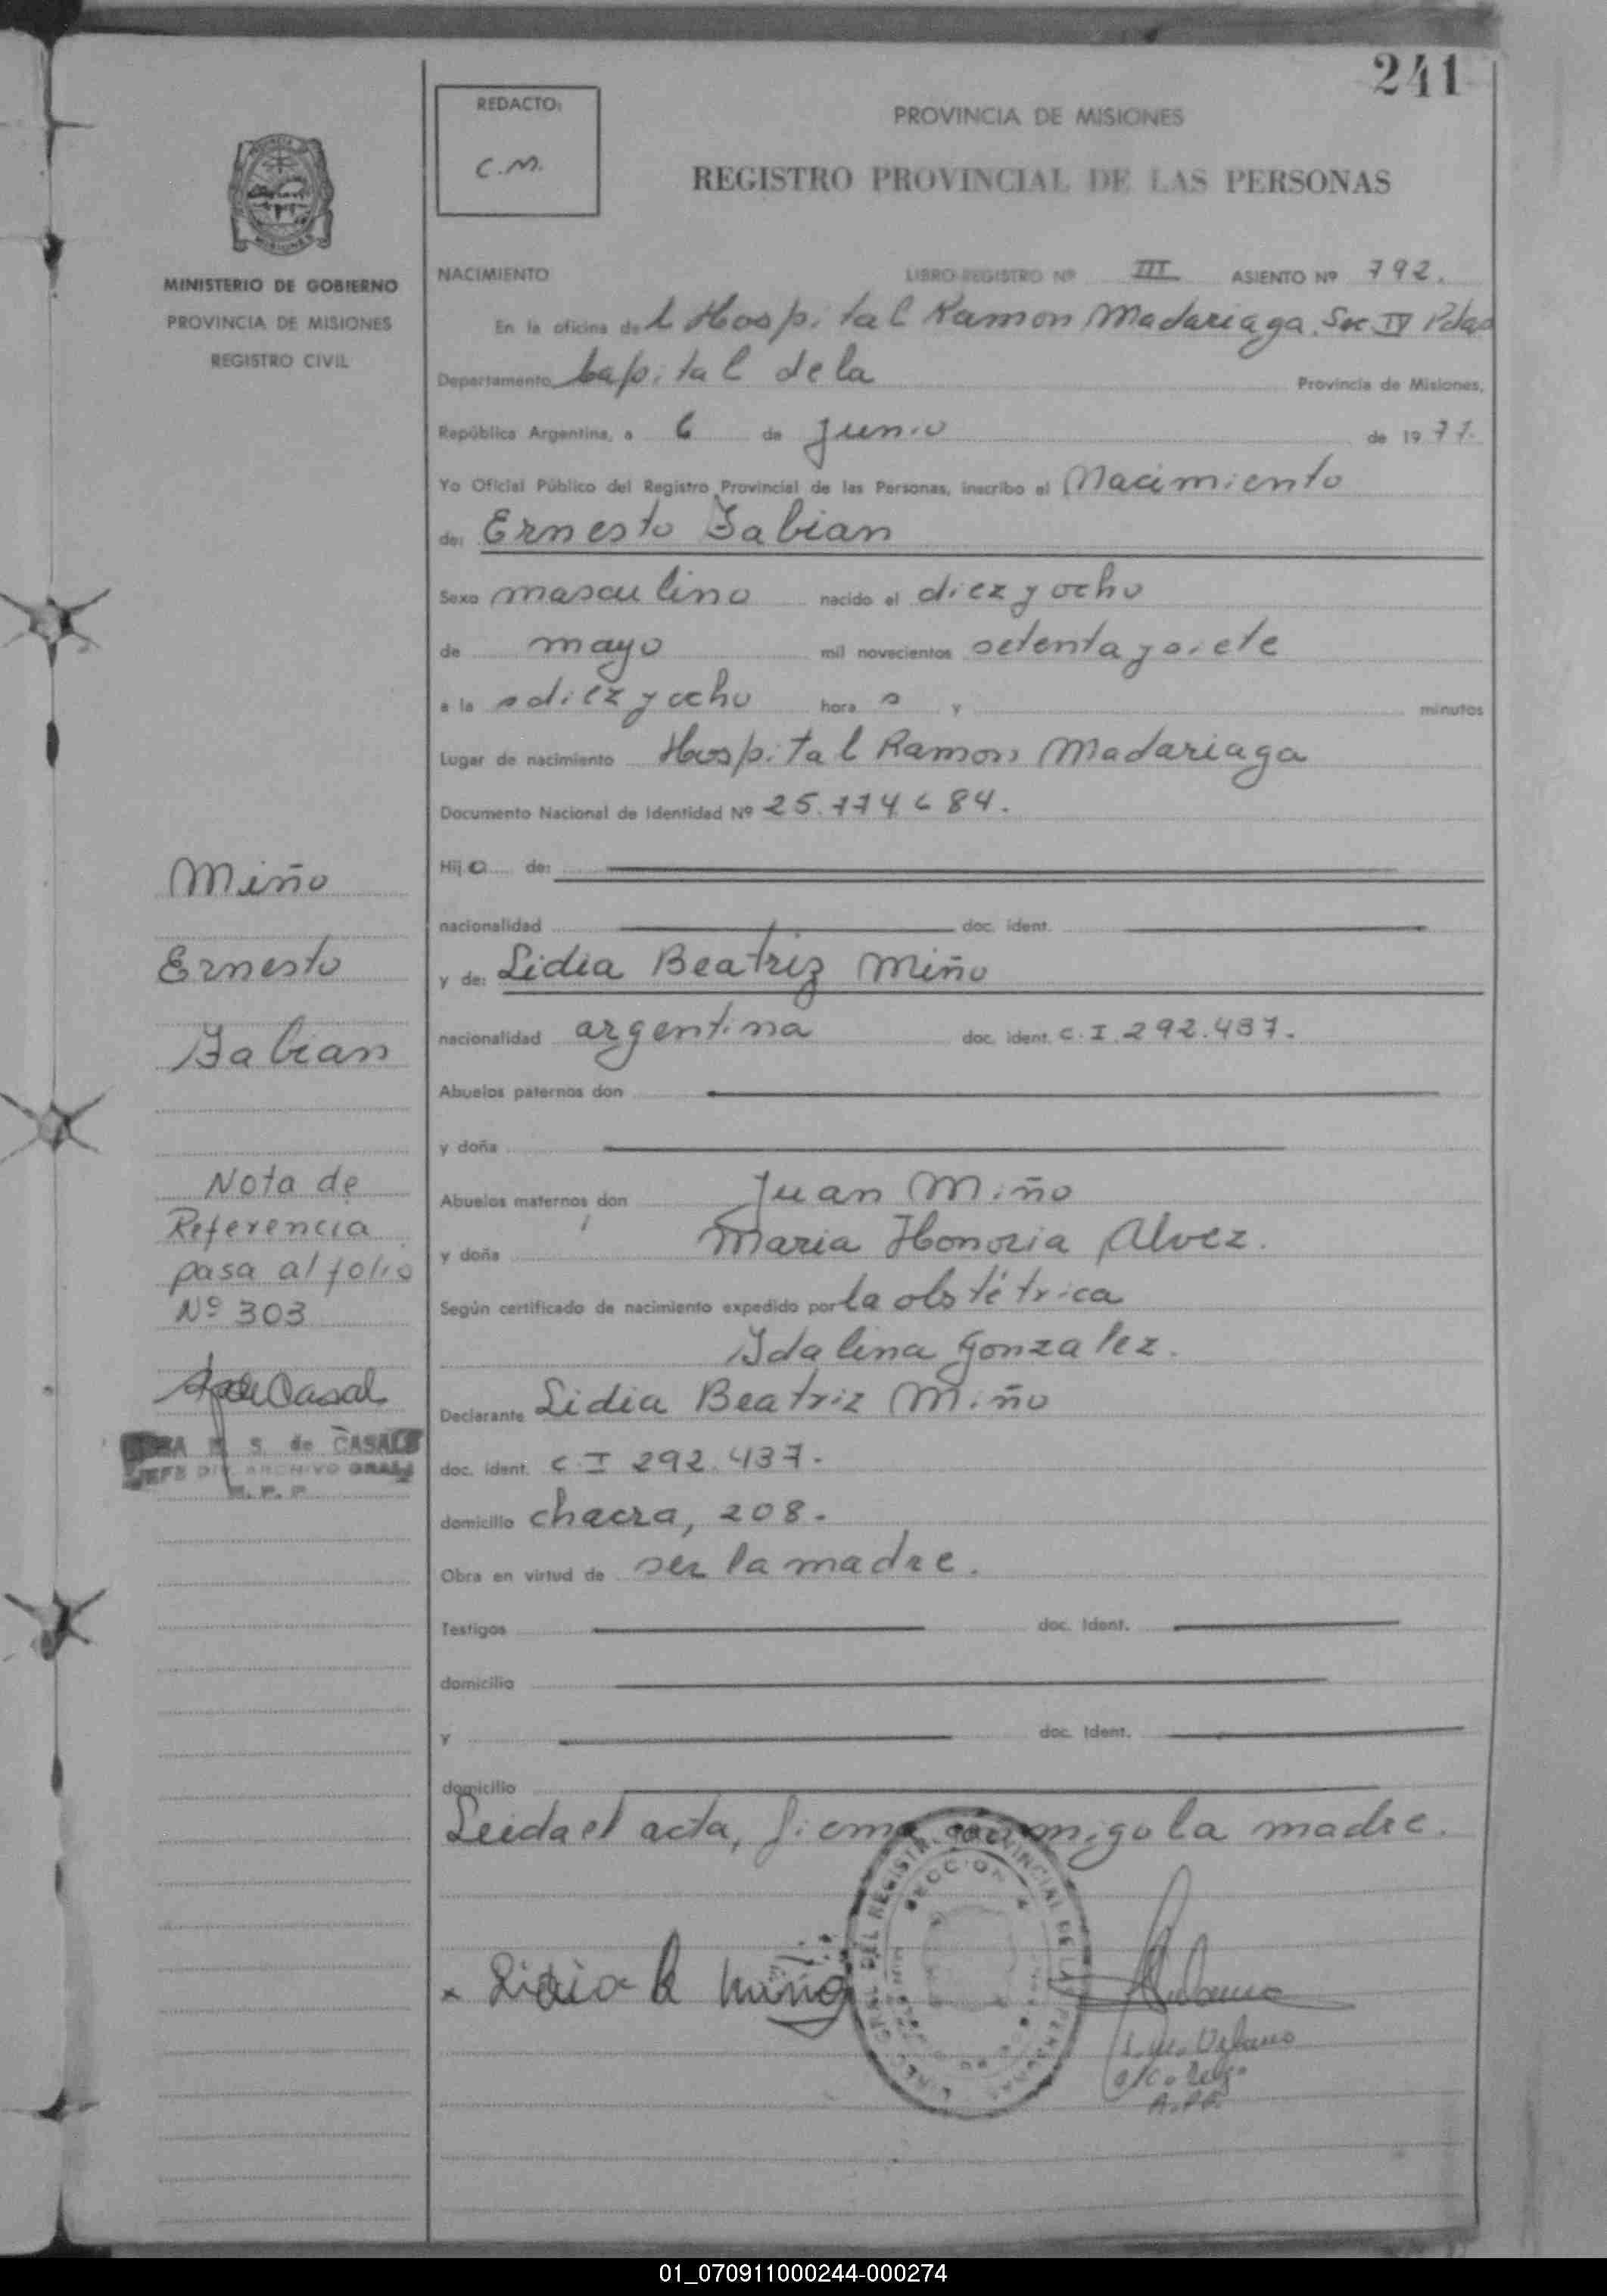 241
REDACTO:
C.M.
PROVINCIA DE MISIONES
REGISTRO PROVINCIAL DE LAS PERSONAS
MINISTERIO DE GOBIERNO
PROVINCIA DE MISIONES
REGISTRO CIVIL
NACIMIENTO LIBRO REGISTRO Nº III ASIENTO Nº 792.
En la oficina del Hospital Ramon Madariaga. Sec. IV Pdas
Departamento Capital de la Provincia de Misiones,
República Argentina, a 6 de Junio de 1977.
Yo Oficial Público del Registro Provincial de las Personas, inscribo el Nacimiento
de: Ernesto Fabian
Sexo masculino nacido el diez y ocho
de mayo mil novecientos setenta y siete
a la s diez y ocho hora s y minutos
Lugar de nacimiento Hospital Ramon Madariaga
Documento Nacional de Identidad Nº 25.774.684.
Hijo de:
nacionalidad doc. ident.
y de: Lidia Beatriz Miño
nacionalidad argentina doc. ident. C.I. 292.437.
Abuelos paternos don
y doña
Abuelos maternos don Juan Miño
y doña Maria Honoria Alvez.
Según certificado de nacimiento expedido por la obstétrica
Idalina Gonzalez.
Declarante Lidia Beatriz Miño
doc. ident. C.I 292.437.
domicilio chacra, 208.
Obra en virtud de ser la madre.
Testigos doc. Ident.
domicilio
y doc. Ident.
domicilio
Leida el acta, firma conmigo la madre.
Miño
Ernesto
Fabian
Nota de
Referencia
pasa al folio
Nº 303
de Casal
S. de CASALS
JEFE DIV. ARCHIVO GRAL.
R. P. P.
x Lidia B Miño
REGISTRO PROVINCIAL DE LAS PERSONAS
SECCION 4
01_070911000244-000274